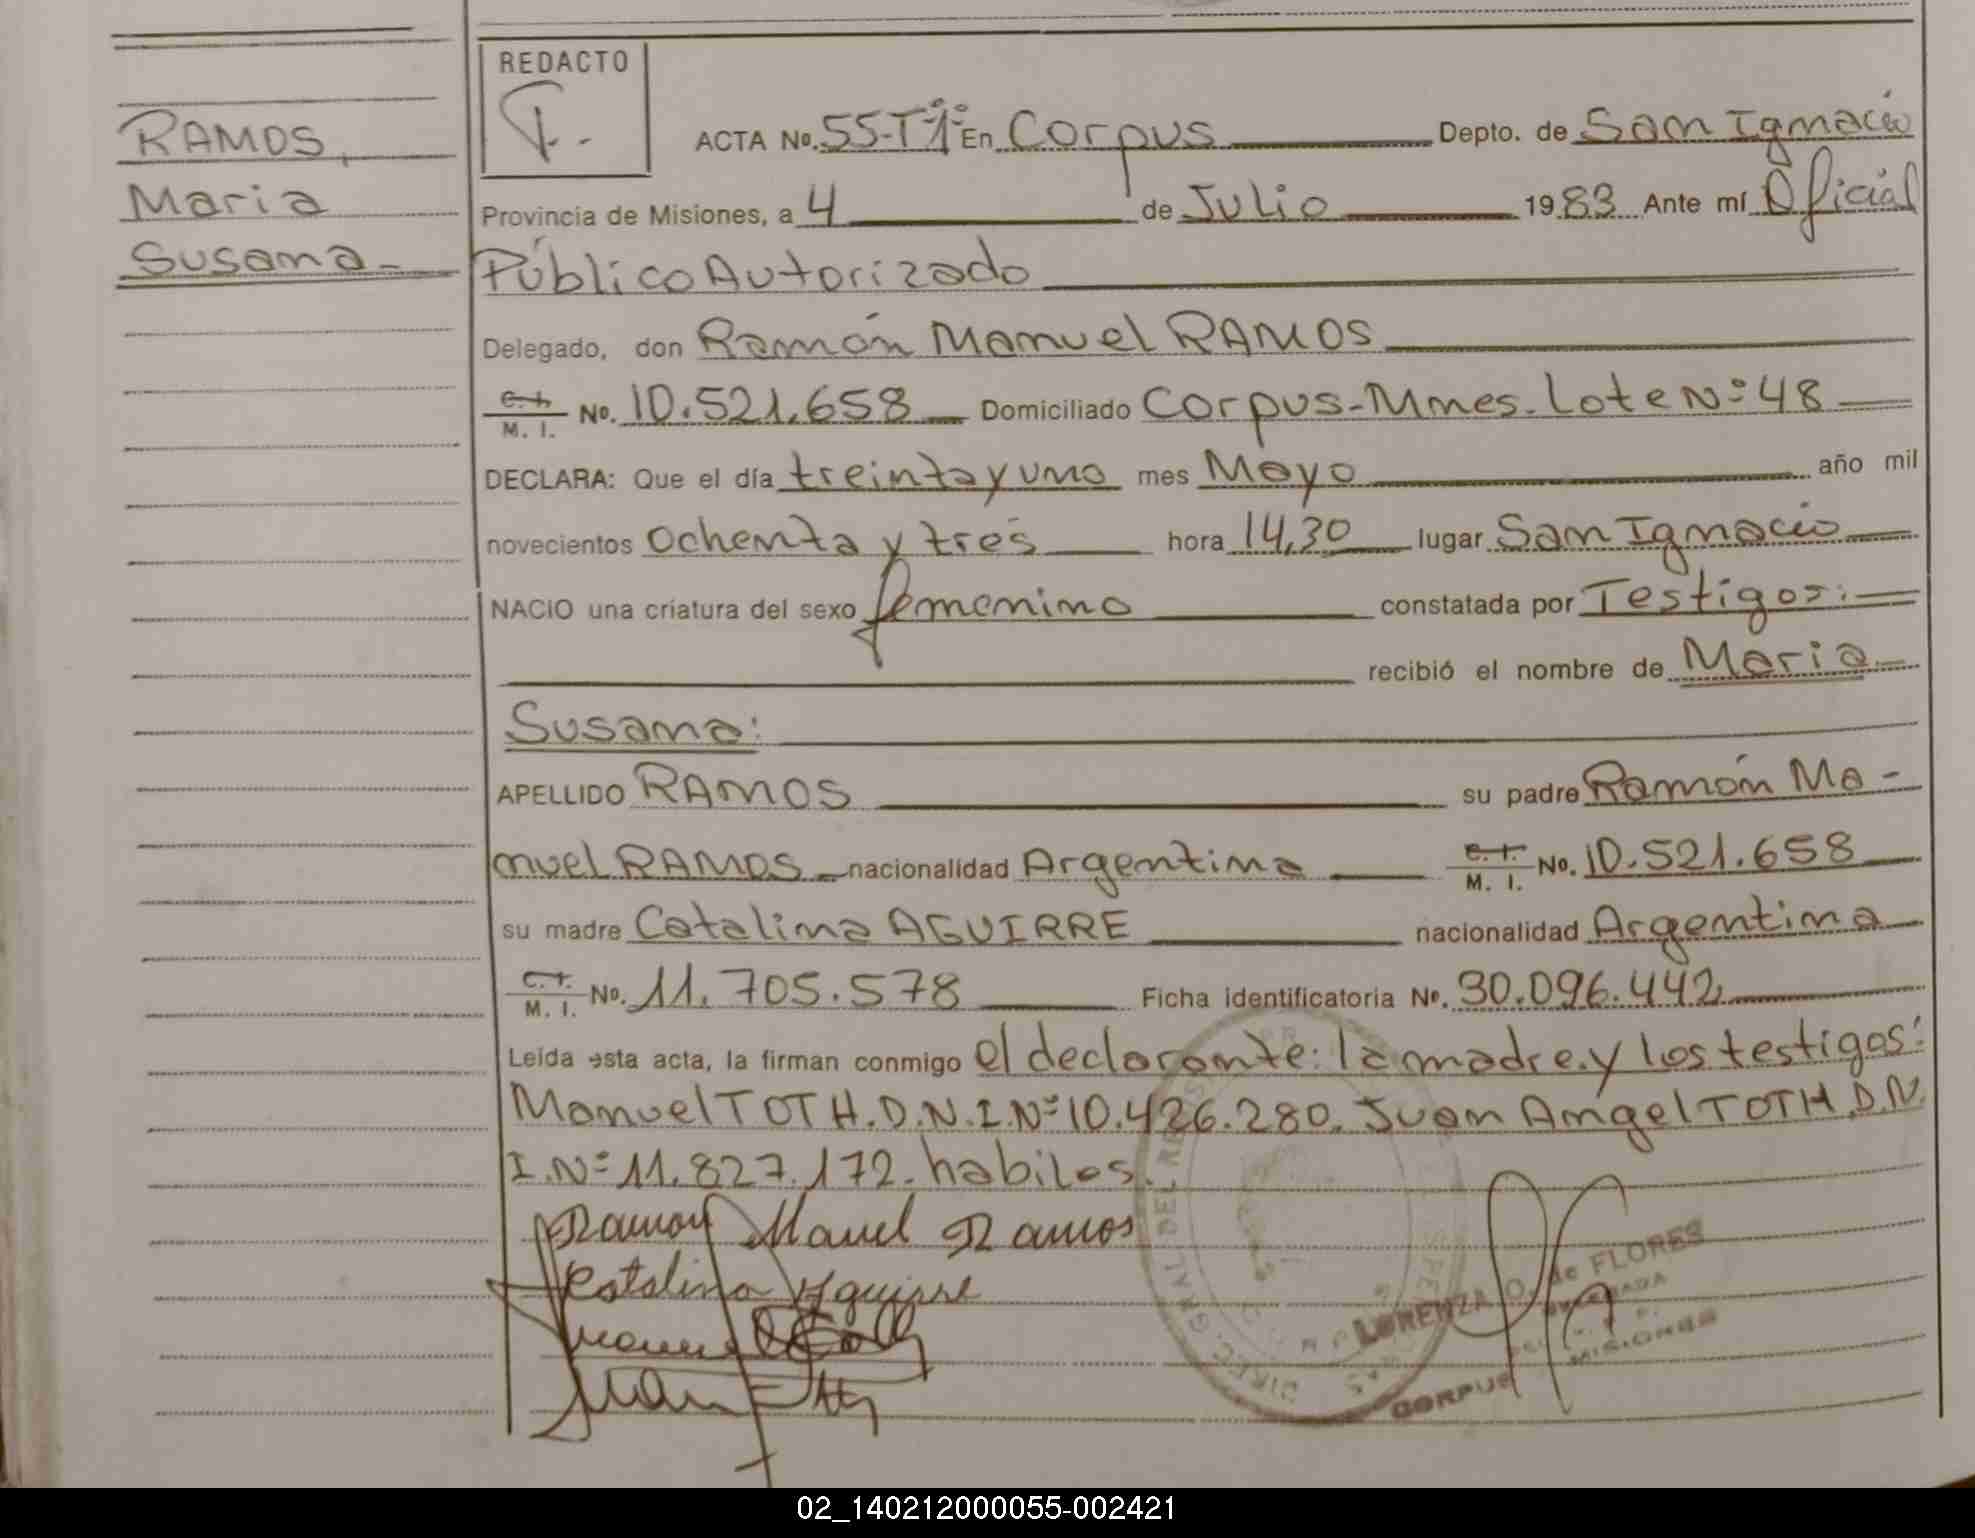 RAMOS,
Maria
Susana-
REDACTO
ACTA No. 55-Tº1º En Corpus Depto. de San Ignacio
Provincia de Misiones, a 4 de Julio 1983 Ante mí Oficial
Público Autorizado
Delegado, don Ramón Manuel RAMOS
C. I. / M. I. No. 10.521.658 Domiciliado Corpus-Mnes. Lote Nº 48
DECLARA: Que el día treinta y uno mes Mayo año mil
novecientos ochenta y tres hora 14,30 lugar San Ignacio
NACIO una criatura del sexo femenino constatada por Testigos:
recibió el nombre de Maria
Susana:
APELLIDO RAMOS su padre Ramón Ma-
nuel RAMOS nacionalidad Argentina C. I. / M. I. No. 10.521.658
su madre Catalina AGUIRRE nacionalidad Argentina
C. I. / M. I. No. 11.705.578 Ficha identificatoria No. 30.096.442
Leída esta acta, la firman conmigo el declarante: la madre y los testigos:
Manuel TOTH. D.N.I. Nº 10.426.280. Juan Angel TOTH. D.N.
I. Nº 11.827.172. habiles.
Ramon Manuel Ramos
Catalina Aguirre
LORENZA O. de FLORES
MISIONES
CORPUS
02_140212000055-002421